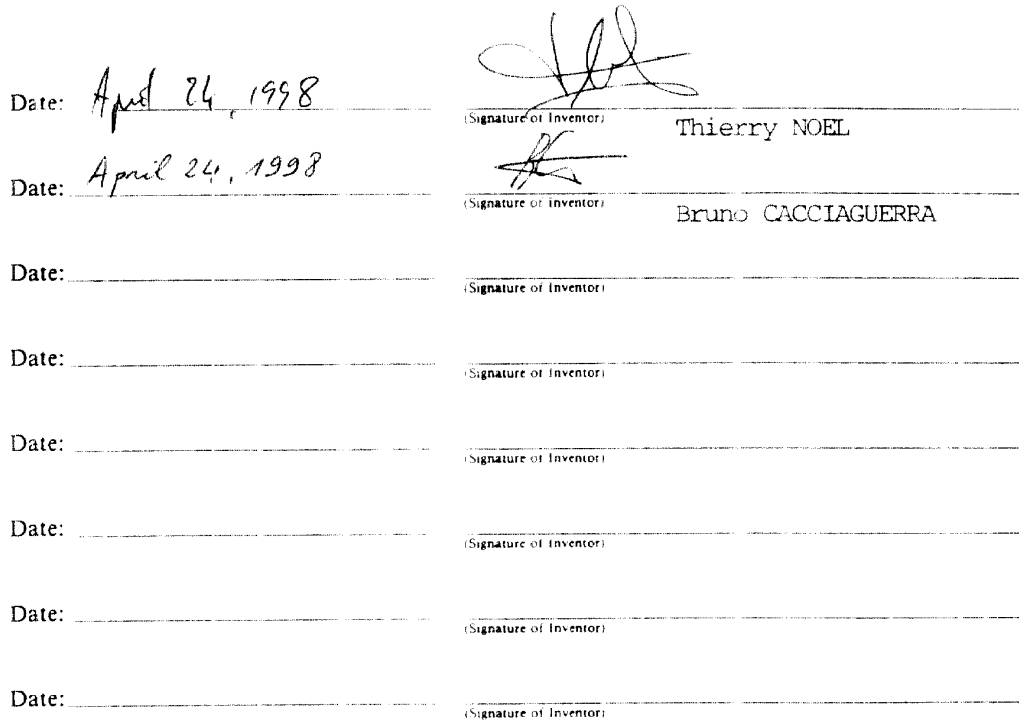 Date: April 24, 1998
(Signature of Inventor) Thierry NOEL
Date: April 24, 1998
(Signature of Inventor) Bruno CACCIAGUERRA
Date:
(Signature of Inventor)
Date:
(Signature of Inventor)
Date:
(Signature of Inventor)
Date:
(Signature of Inventor)
Date:
(Signature of Inventor)
Date:
(Signature of Inventor)